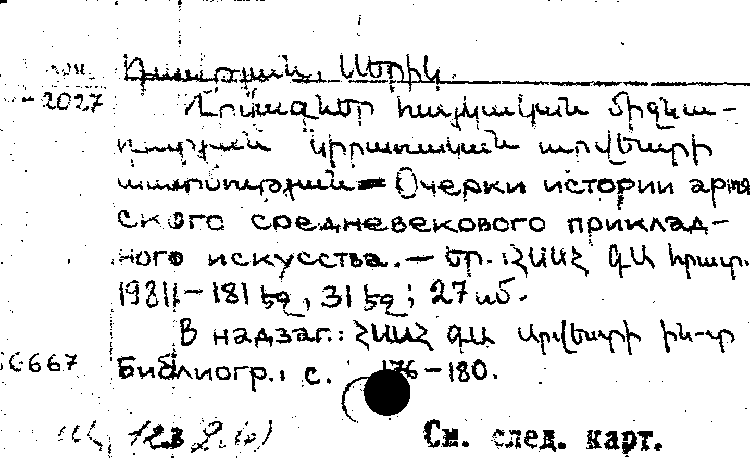 Դավթյան, Սերիկ.
-2027
Դրվագներ հայկական միջնա-
դարյան կիրառական արվեստի
պատմության = Очерки истории армян
ского средневекового приклад-
ного искусства. — Եր.: ՀՍՍՀ ԳԱ հրատ.
1981 — 181 էջ, 31 էջ; 27 սմ.
В надзаг.: ՀՍՍՀ ԳԱ Արվեստի ին-տ
56667
Библиогр.: с. 176-180.
См. след. карт.